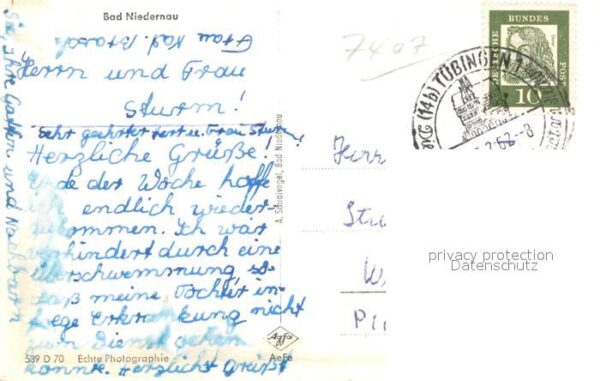 Bad Niedernau
Frau Kath. Brasch
Herrn und Frau
Sturm!
Sehr geehrter Herr u. Frau Sturm
Herzliche Grüße!
Ende der Woche hoffe
ich endlich wieder
kommen. Ich war
verhindert durch eine
Überschwemmung, so
daß meine Tochter in-
folge Erkrankung nicht
zum Dienst gehen
konnte. Herzlichst grüßt
Sie, Ihre Gattin und Nachbarn
589 D 70 Echte Photographie
Agfa
AeFe
A. Schmalvogel, Bad Niedernau
7407
DEUTSCHE BUNDESPOST
10
(14b) TÜBINGEN
62-8
Herr
Stu
W
Pl
privacy protection
Datenschutz